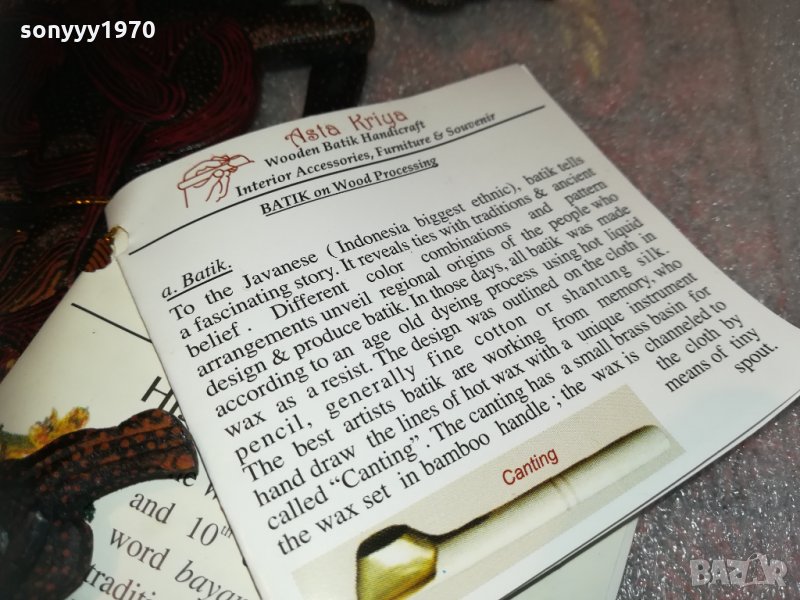 sonyyy1970
Asta Kriya
Wooden Batik Handicraft
Interior Accessories, Furniture & Souvenir
BATIK on Wood Processing
a. Batik.
To the Javanese ( Indonesia biggest ethnic), batik tells
a fascinating story. It reveals ties with traditions & ancient
belief . Different color combinations and pattern
arrangements unveil regional origins of the people who
design & produce batik. In those days, all batik was made
according to an age old dyeing process using hot liquid
wax as a resist. The design was outlined on the cloth in
pencil, generally fine cotton or shantung silk.
The best artists batik are working from memory, who
hand draw the lines of hot wax with a unique instrument
called “Canting” . The canting has a small brass basin for
the wax set in bamboo handle ; the wax is channeled to
the cloth by
means of tiny
spout.
Canting
and 10th
word bayan
traditi
BAZAR